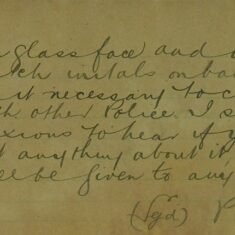 glass face and
initals on ba
it necessary to c
th other Police. I s
xious to hear if y
anything about it
be given to any
(Sgd)